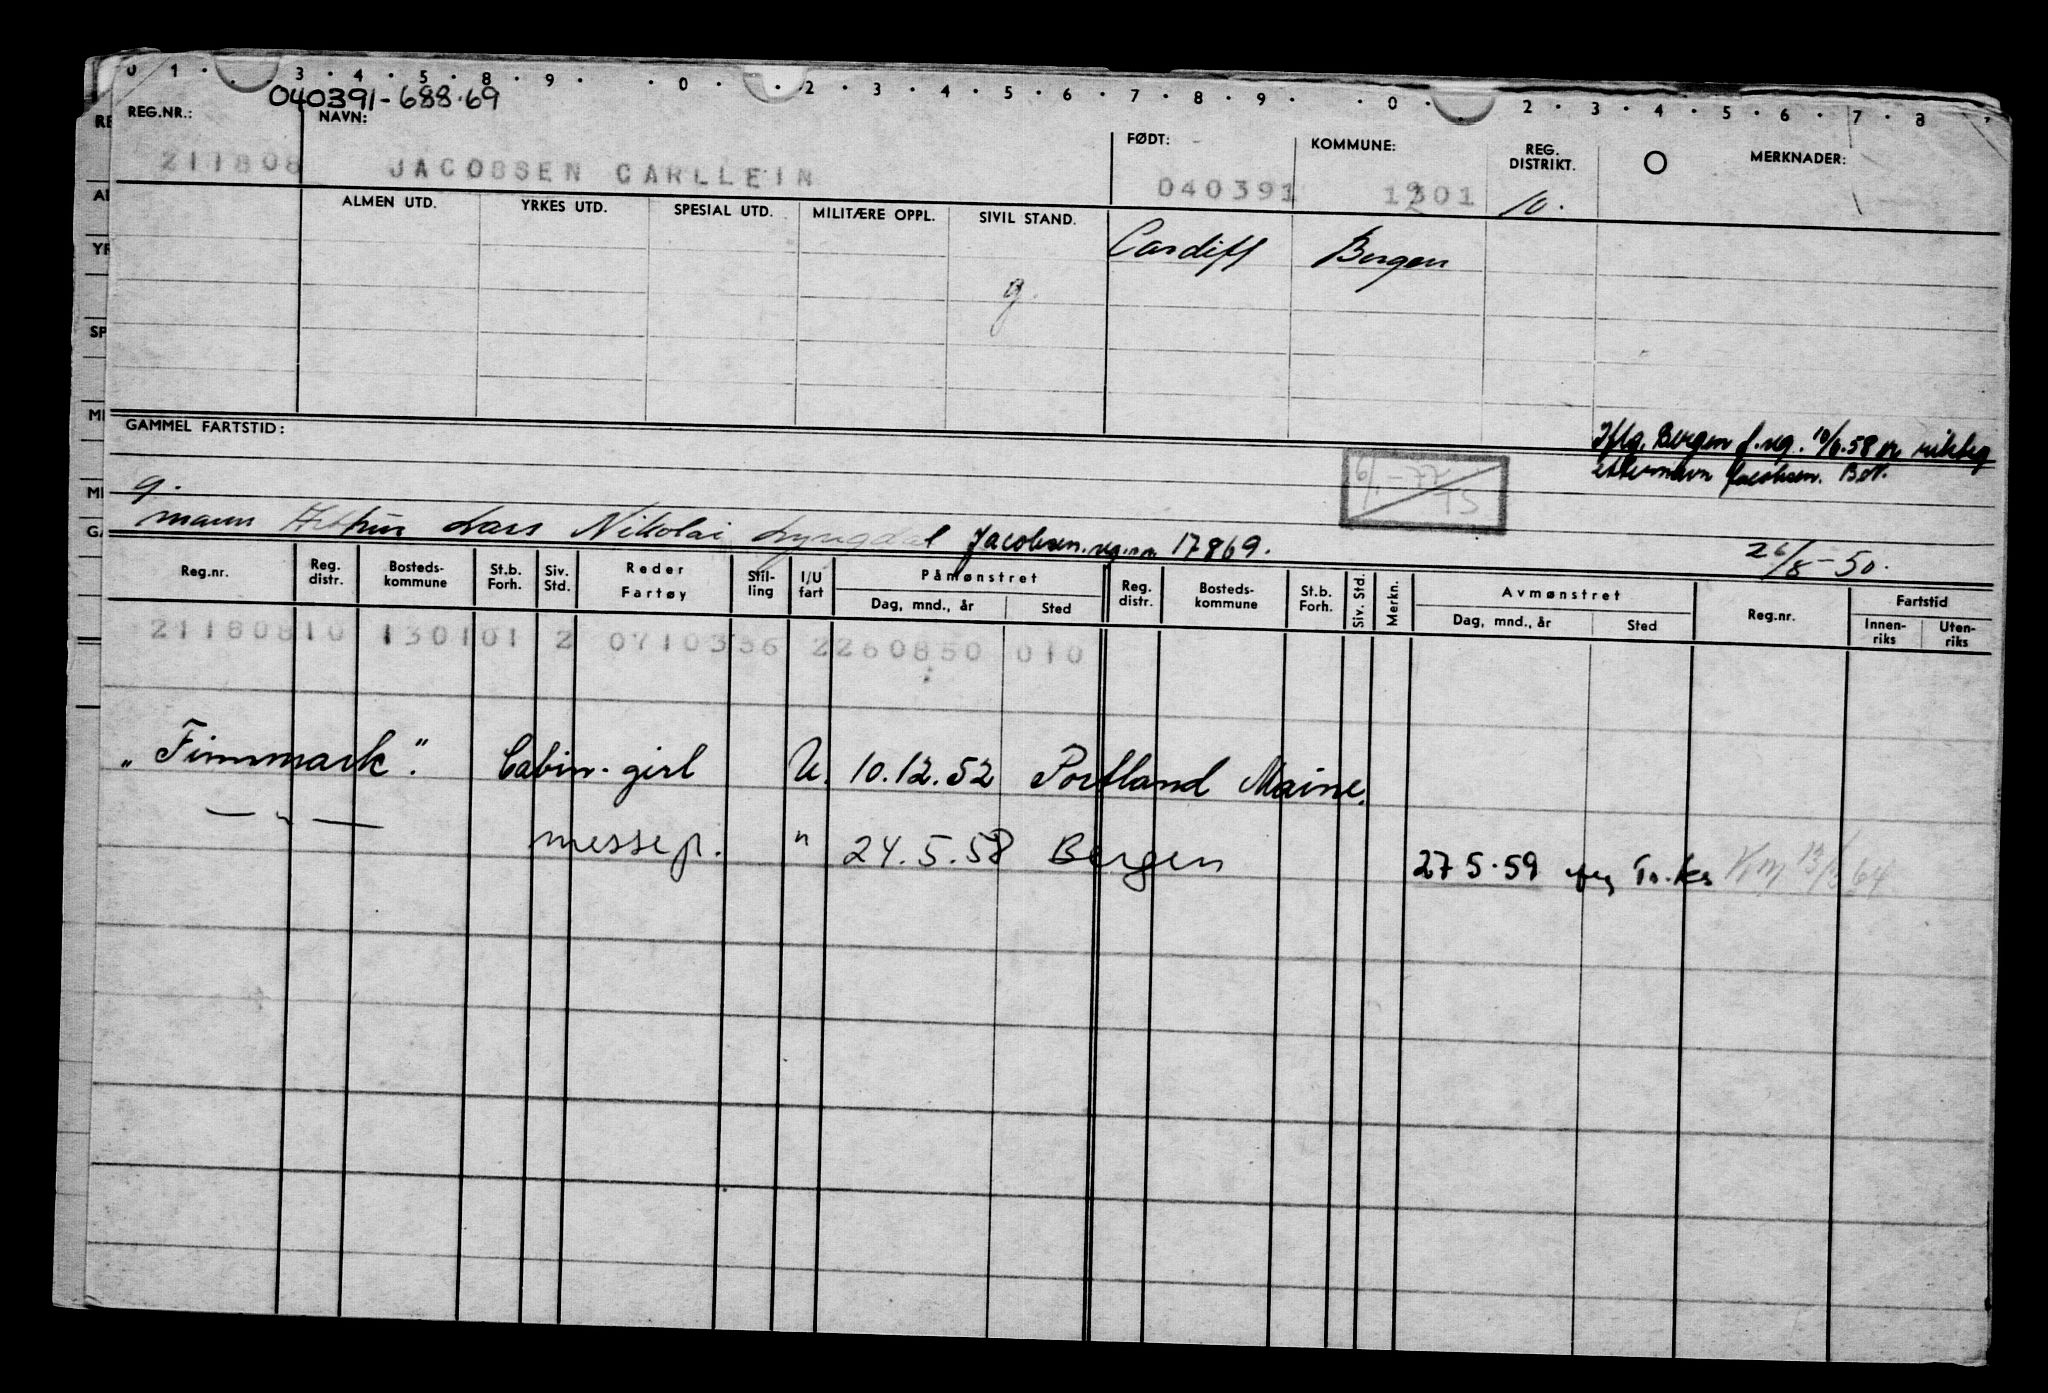 0 1 . 3 . 4 . 5 . 8 . 9 . . 0 . 2 . 3 . 4 . 5 . 6 . 7 . 8 . 9 . . 0 . 2 . 3 . 4 . 5 . 6 . 7 . 8
040391-688.69
REG.NR.: NAVN: FØDT: KOMMUNE: REG. DISTRIKT. O MERKNADER:
211808 JACOBSEN CARLLEIN 040391 1301 10.
ALMEN UTD. YRKES UTD. SPESIAL UTD. MILITÆRE OPPL. SIVIL STAND.
Cardiff Bergen
g.
GAMMEL FARTSTID:
Iflg. Bergen f.reg. 10/6.58 er riktig
etternavn Jacobsen. B.N.
6/1-77
TS
g.
mann Arthur Lars Nikolai Lyngdal Jacobsen. reg.nr. 17869. 26/8-50.
Reg.nr. Reg. distr. Bosteds-kommune St.b. Forh. Siv. Std. Reder Fartøy Stil-ling I/U fart Påmønstret Dag, mnd., år Sted Reg. distr. Bosteds-kommune St.b. Forh. Siv. Std. Merkn. Avmønstret Dag, mnd., år Sted Reg.nr. Fartstid Innen-riks Uten-riks
21180810 130101 2 0710356 2260850 010
„Finnmark“. Cabin-girl U. 10.12.52 Portland Maine.
— " — messep. " 24.5.58 Bergen 27 5.59